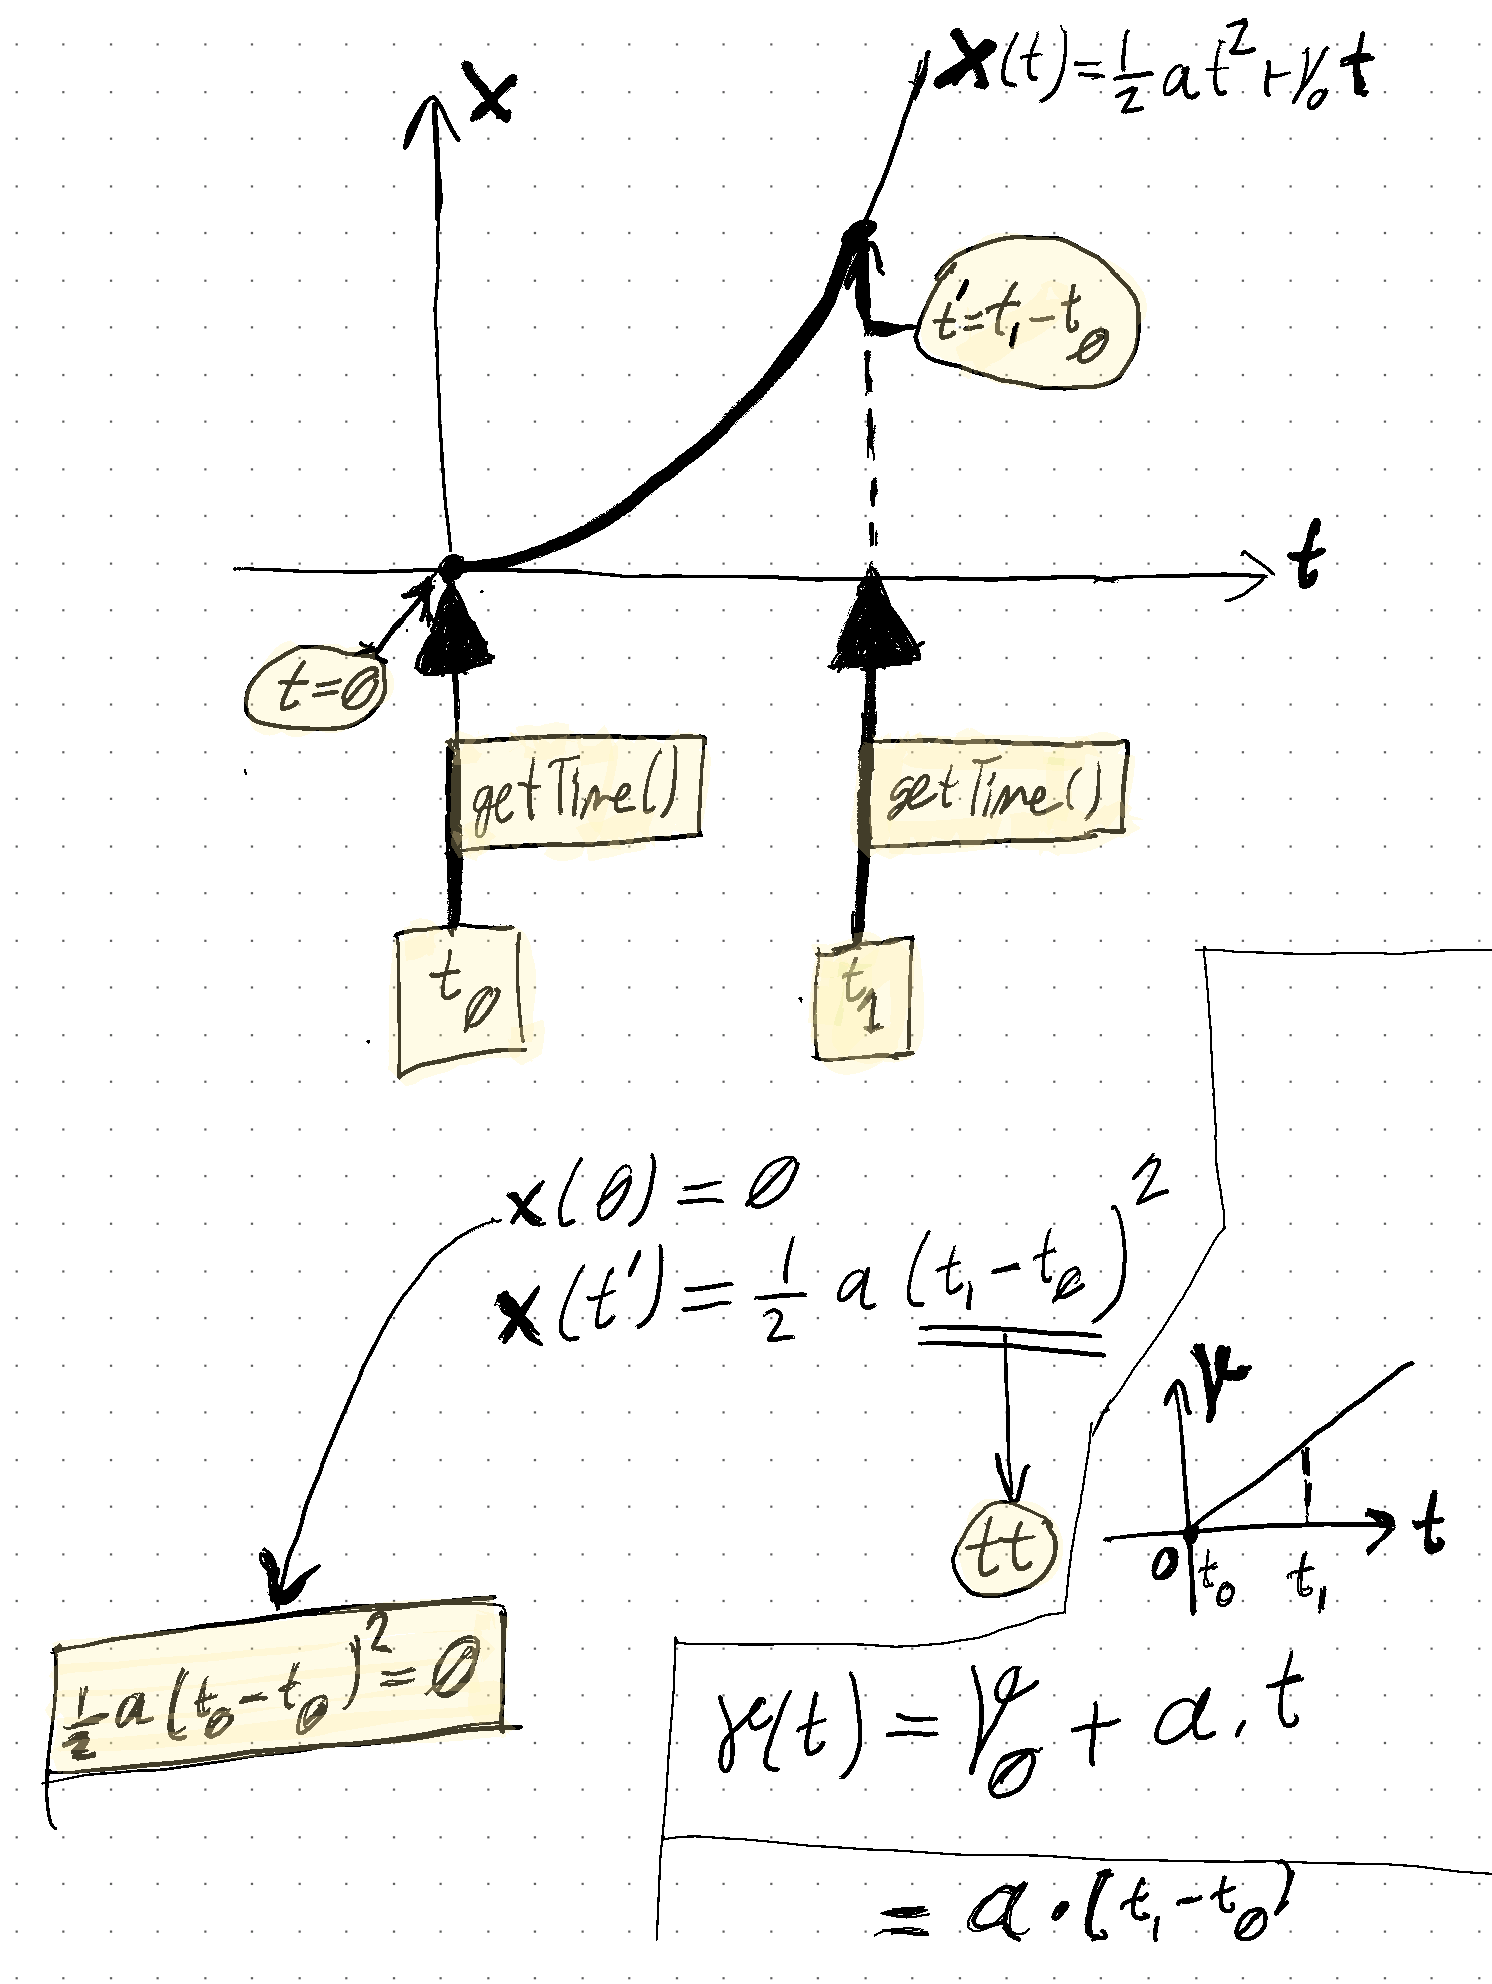 x
x(t)=½at²+V₀t
t'=t₁-t₀
t
t=0
getTime()
getTime()
t₀
t₁
x(0)=0
x(t')=½a(t₁-t₀)²
tt
V
t
0
t₀
t₁
½a(t₀-t₀)²=0
V(t)=V₀+a.t
=a·(t₁-t₀)